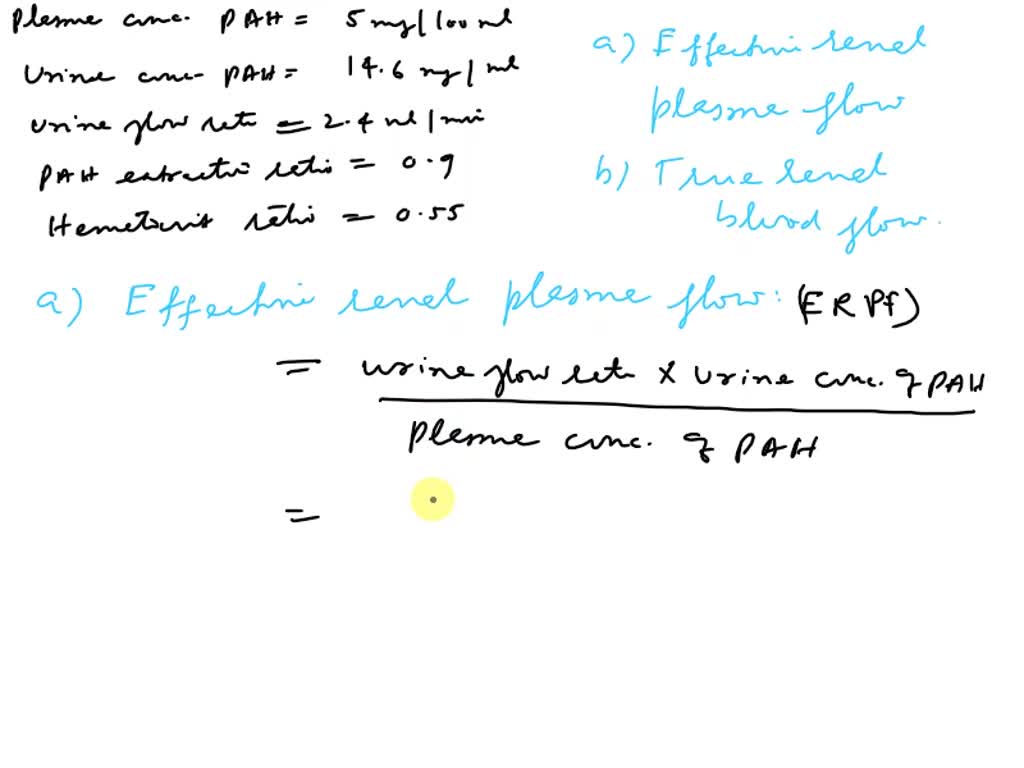 Plasma conc. PAH = 5 mg/100 ml
Urine conc- PAH = 14.6 mg/ml
urine flow rate = 2.4 ml/min
PAH extractin ratio = 0.9
Hematocrit ratio = 0.55
a) Effective renal
plasma flow
b) True renal
blood flow.
a) Effective renal plasma flow: (ERPf)
= urine flow rate x urine conc. of PAH
plasma conc. of PAH
=